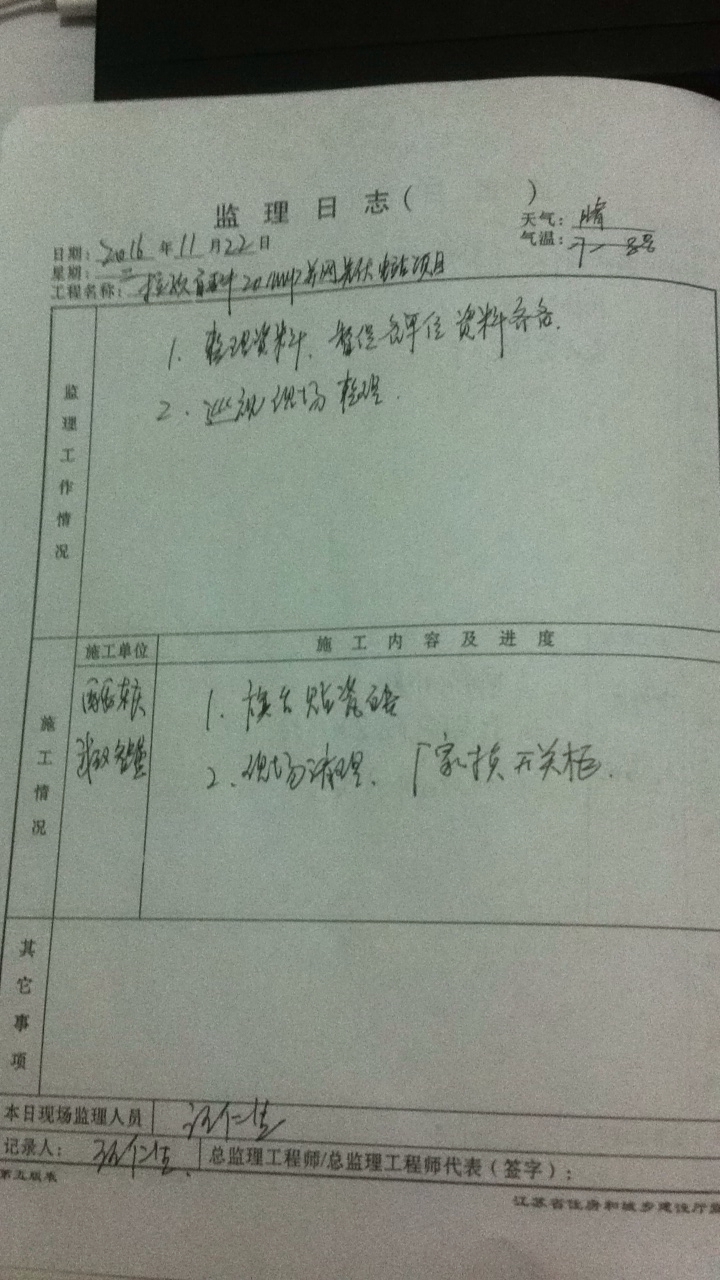 监理日志( )
日期: 2016 年 11 月 22 日 天气: 晴
星期: 二 气温:
工程名称: 20MWp并网光伏电站项目
监理工作情况
1. 整理资料、督促各单位资料齐备.
2. 巡视现场整理.
施工单位 施工内容及进度
施工情况
1. 旗台贴瓷砖
2. 现场清理、厂家换开关柜.
其它事项
本日现场监理人员 汪仁生
记录人: 汪仁生 总监理工程师/总监理工程师代表(签字):
第五版表 江苏省住房和城乡建设厅监